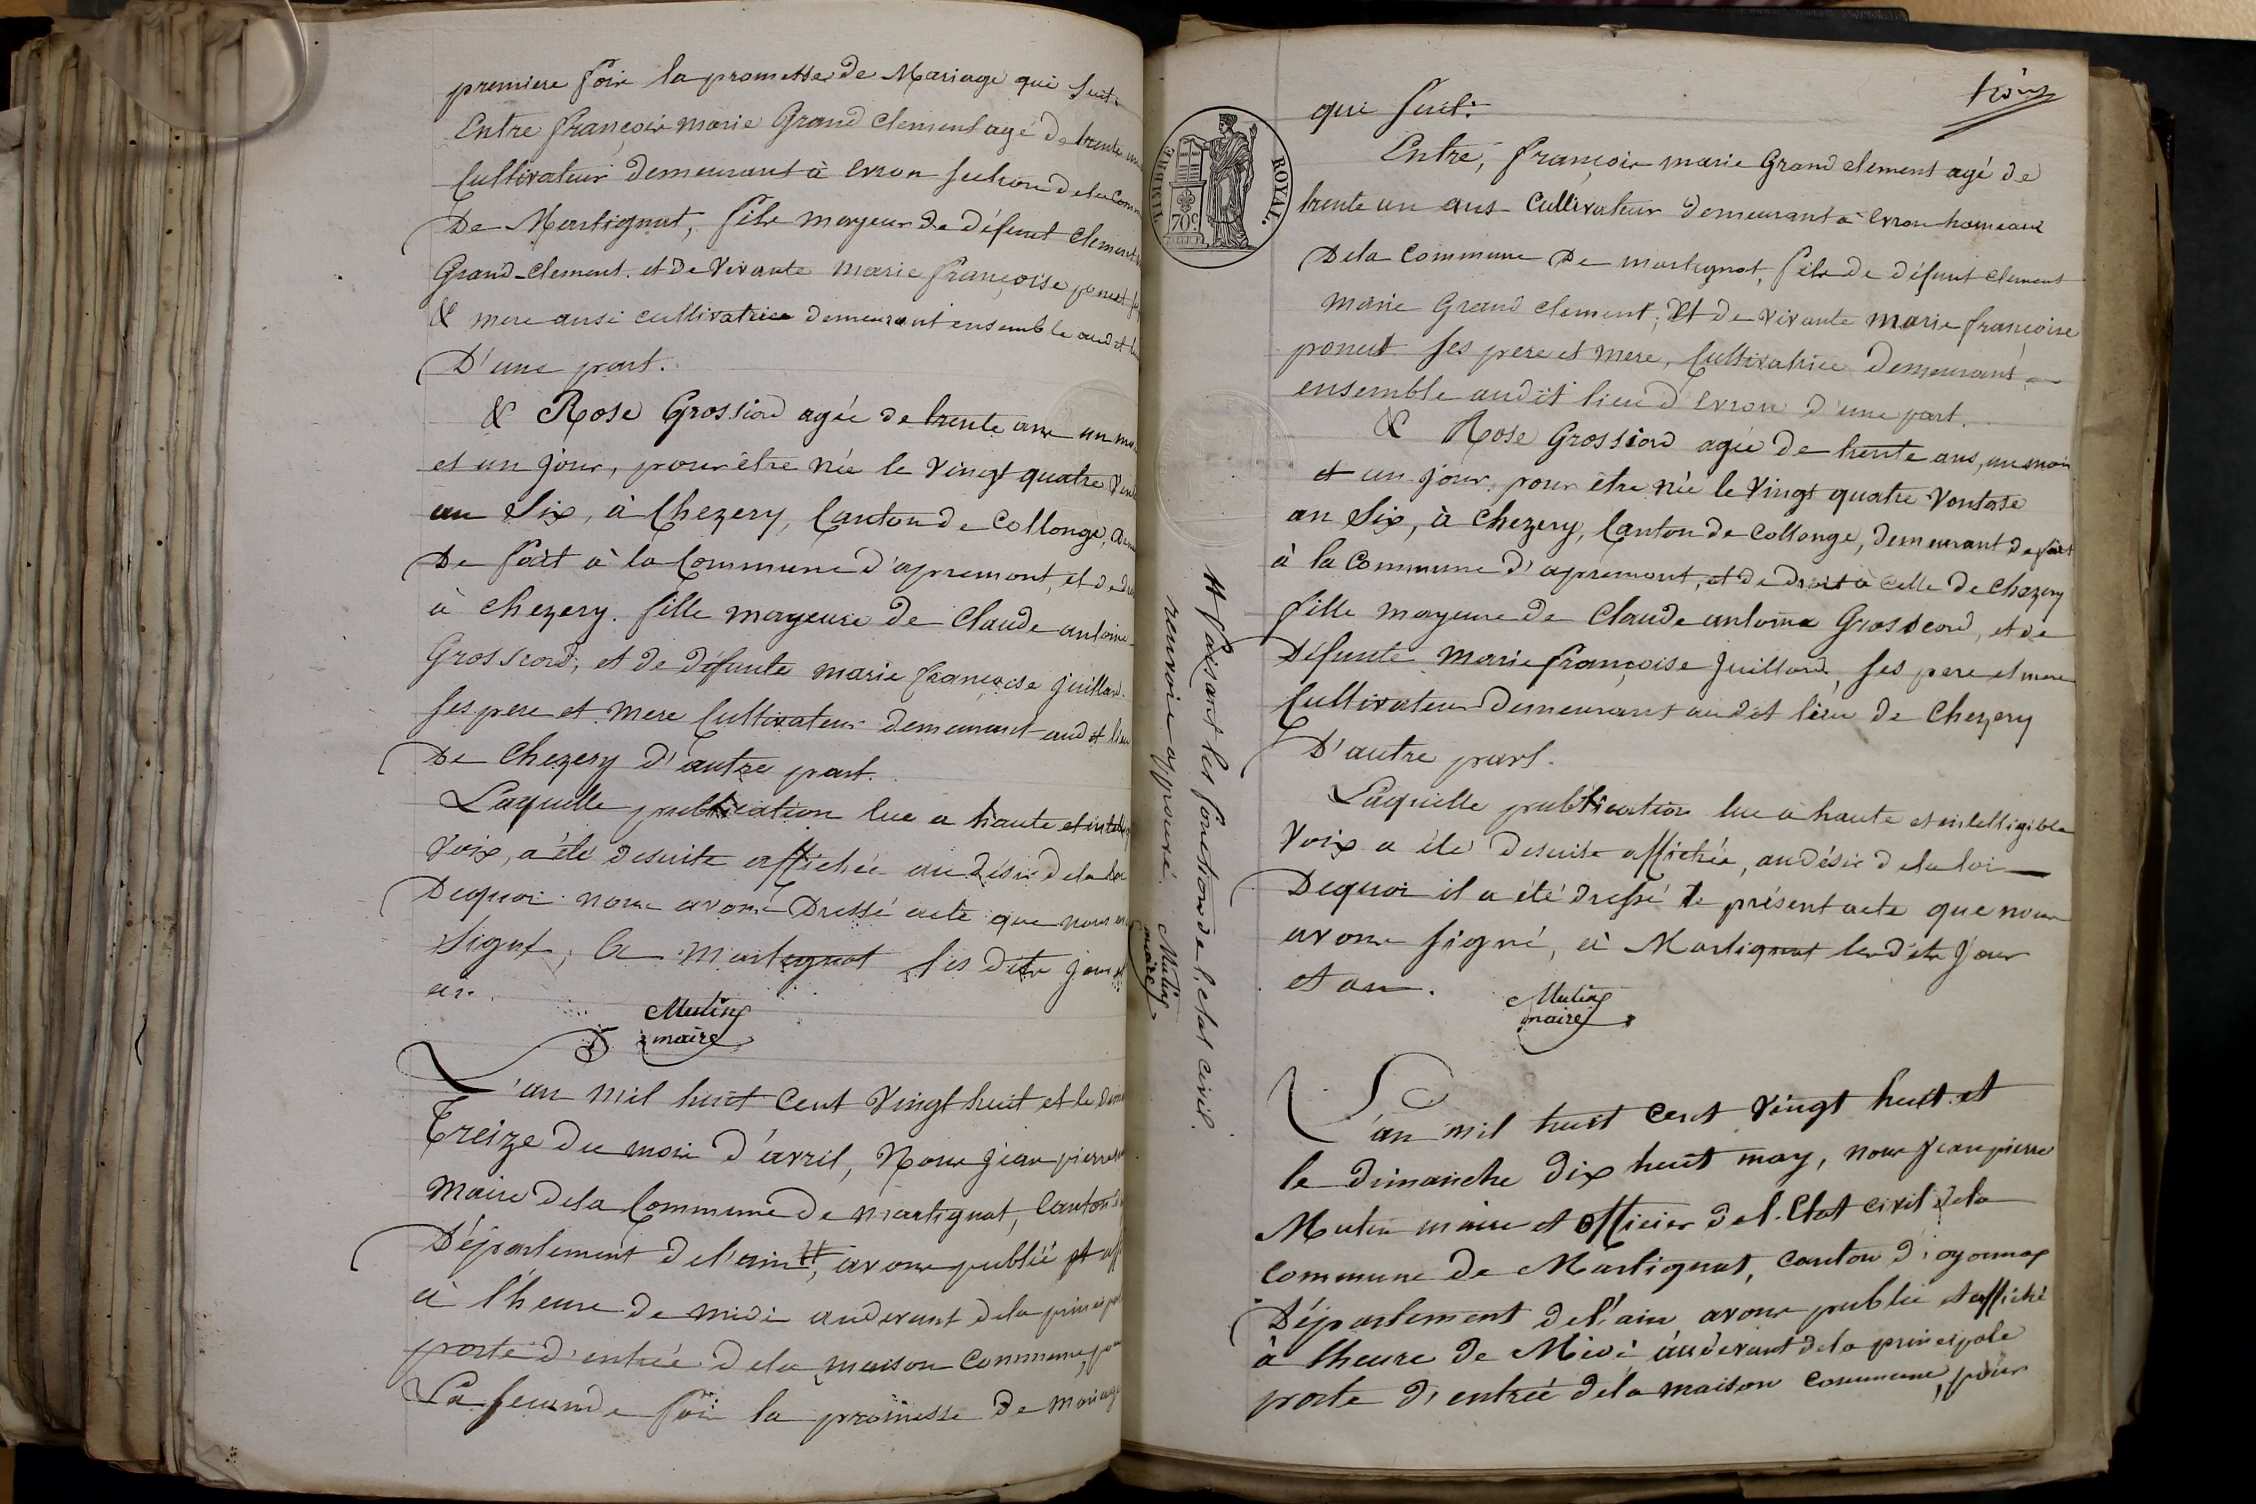 premiere fois la promesse de Mariage qui suit.
Entre françois marie Grand clement agé de trente un
Cultivateur demeurant à Evron section dela Com
De Martignat, fils mayeur de défunt clement
Grand-clement. et de vivante marie françoise poncet
& mere ausi cultivatrice demeurant ensemble audit
D'une part.
& Rose Grossiord agée de trente ans un mois
et un jour, pour être née le vingt quatre vent
an Six, à Chezery, Canton de Collonge,
De fait à la Commune d'apremont, et de
à chezery. fille mayeure de Claude antoine
Grossiord, et de défunte marie françoise juillard.
ses pere et mere Cultivateur demeurant audit lieu
De Chezery d'autre part.
Laquelle publication lue a haute et intellig
voix, a été desuite affichée au désir dela loi
Dequoi nous avons Dressé acte que nous
Signé, A Martignat les dits jour et
an.
Mutin
maire
L'an mil huit cent vingt huit et le dim
Treize du mois d'avril, Nous jean pierre
Maire dela Commune de martignat, Canton
Département de l'ain #, avons publié et aff
à l'heure de midi audevant dela principal
porte d'entrée dela maison commune, pour
La seconde fois la promesse de mariage
# faisant les fonctions de l'etat civil.
renvoie approuvé. Mutin
maire
TIMBRE ROYAL.
70c
trois
qui suit:
Entre, françois marie Grand clement agé de
trente un ans Cultivateur demeurant à Evron hameau
Dela Commune De martignat, fils de défunt clement
marie Grand clement, Et de vivante marie françoise
poncet ses pere et mere, Cultivatrice demeurant
ensemble audit lieu d'Evron d'une part.
& Rose Grossiord agée de trente ans, un mois
et un jour, pour être née le vingt quatre Ventose
an Six, à Chezery, Canton de Collonge, demeurant de fait
à la Commune d'apremont, et de droit à celle de Chezery
fille mayeure de Claude antoine Grossiord, et de
Défunte marie françoise juillard, ses pere et mere
Cultivateur demeurant audit lieu de Chezery
D'autre part.
Laquelle publication lue à haute et intelligible
Voix a été desuite affichée, au désir dela loi
Dequoi il a été dressé le présent acte que nous
avons signé, à Martignat les dits jour
et an.
Mutin
maire
L'an mil huit cent vingt huit et
le dimanche dix huit may, nous jean pierre
Mutin maire et officier de l'Etat civil dela
commune de Martignat, canton d'oyonnax
Département de l'ain avons publié et affiché
à l'heure de Midi audevant dela principale
porte d'entrée dela maison commune, pour